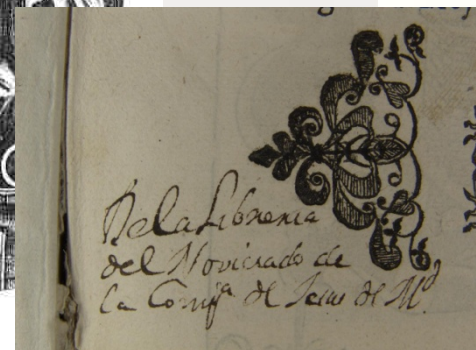 De la Libreria
del Noviciado de
la Comp.ª de Jesus de M.d